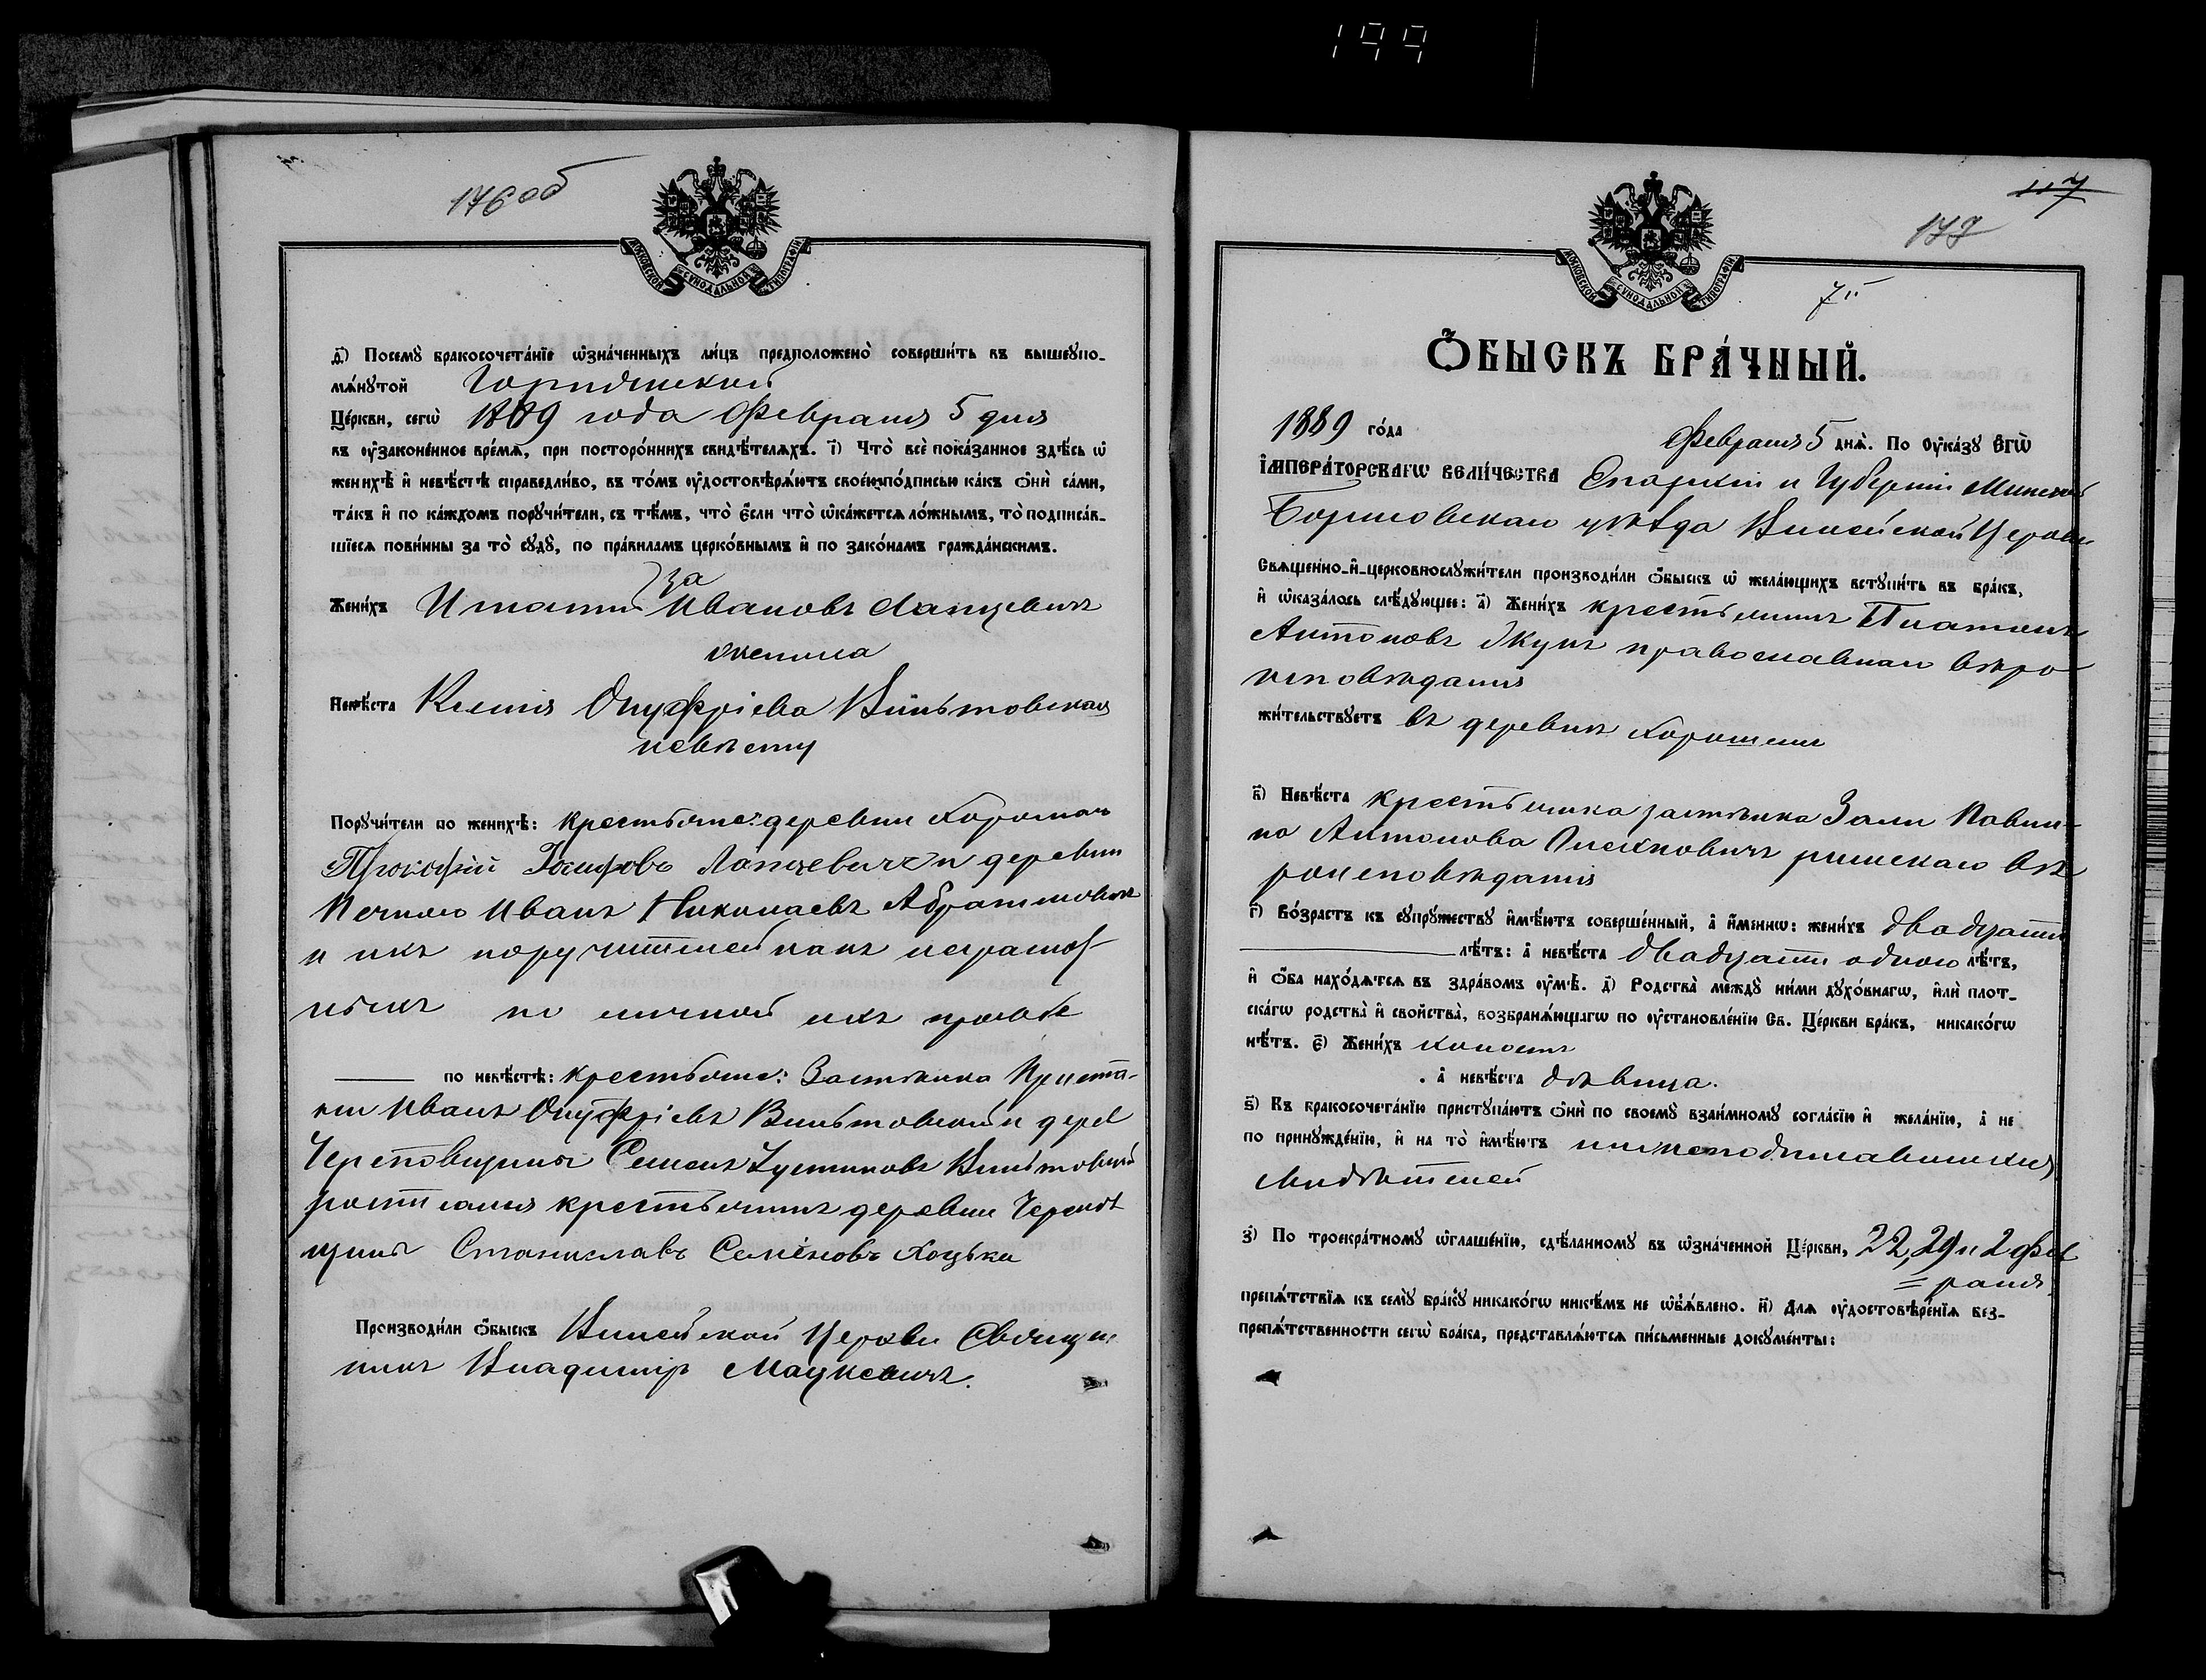 199
176 об
МОСКОВСКОЙ СѴНОДАЛЬНОЙ ТИПОГРАФІИ
д҃і) Посемꙋ̀ бракосочета́нїе ѡ҆зна́ченныхъ ли́цъ предположено̀ соверши́ть въ вышеꙋпо-
мѧ́нꙋтой
Це́ркви, сегѡ̀ 1889 года Февраля 5 дня
въ ᲂу҆зако́ненное вре́мѧ, при посторо́ннихъ свидѣ́телѧхъ. і҃) Что̀ всѐ пока́занное здѣ́сь ѡ҆
женихѣ̀ и҆ невѣ́стѣ справедли́во, въ то́мъ ᲂу҆достовѣрѧ́ютъ свое́ю по́дписью ка́къ ѻ҆нѝ са́ми,
та́къ и҆ по ка́ждомъ порꙋчи́тели, съ тѣ́мъ, что̀ є҆́сли что̀ ѡ҆ка́жетсѧ ло́жнымъ, то̀ подписа́в-
шїесѧ пови́нны за то̀ сꙋдꙋ̀, по пра́виламъ церко́внымъ и҆ по зако́намъ гражда́нскимъ.
за
Жени́хъ Игнатій Ивановъ Лапцевичъ
жениха
Невѣ́ста Ксенія Онуфріева Вильтовская
невѣсту
Порꙋчи́тели по женихѣ̀: крестьяне: деревни
Прокофій Іосифовъ Лапцевичъ и деревни
Иванъ Николаевъ
и ихъ поручителей какъ неграмот-
ныхъ по личной ихъ просьбѣ
по невѣ́стѣ: крестьяне: Застѣнка
Иванъ Онуфріевъ Вильтовскій и дерев
Семенъ Устиновъ
росписался крестьянинъ деревни
Станиславъ Семеновъ Хоцько
Производи́ли ѻ҆́быскъ Церкви Священ
никъ Владиміръ Мацкевичъ.
117
177
7
МОСКОВСКОЙ СѴНОДАЛЬНОЙ ТИПОГРАФІИ
Ѻ҆́БЫСКЪ БРА́ЧНЫЙ.
1889 го́да Февраля 5 днѧ̀. По ᲂу҆ка́зꙋ Є҆гѡ̀
І҆мпера́торскагѡ вели́чества Епархіи и Губерніи Минской
Борисовскаго уѣзда Церкви
Свѧще́нно-и҆-церковнослꙋжи́тели производи́ли ѻ҆́быскъ ѡ҆ жела́ющихъ встꙋпи́ть въ бра́къ,
и҆ ѡ҆каза́лось слѣ́дꙋющее: а҃) Жени́хъ крестьянинъ Платонъ
Антоновъ православнаго вѣро
исповѣданія
жи́тельствꙋетъ въ деревнѣ
в҃) Невѣ́ста крестьянка застѣнка
Антонова римскаго вѣ
роисповѣданія
г҃) Во́зрастъ къ сꙋпрꙋ́жествꙋ и҆мѣ́ютъ соверше́нный, а҆ и҆́меннѡ: жени́хъ двадцати
лѣ́тъ: а҆ невѣ́ста двадцати одного лѣ́тъ,
и҆ ѻ҆́ба нахо́дѧтсѧ въ здра́вомъ ᲂу҆мѣ̀. д҃) Родства̀ междꙋ̀ ни́ми дꙋхо́внагѡ, и҆лѝ плот-
ска́гѡ родства̀ и҆ свойства̀, возбранѧ́ющагѡ по ᲂу҆становле́нїю Св. Це́ркви бра́къ, никако́гѡ
нѣ́тъ. є҃) Жени́хъ холостъ
а҆ невѣ́ста дѣвица.
ѕ҃) Къ бракосочета́нїю пристꙋпа́ютъ ѻ҆нѝ по своемꙋ̀ взаи́мномꙋ согла́сїю и҆ жела́нїю, а҆ не
по принꙋжде́нїю, и҆ на то̀ и҆мѣ́ютъ
свидѣтелей
з҃) По троекра́тномꙋ ѡ҆глаше́нїю, сдѣ́ланномꙋ въ ѡ҆зна́ченной Це́ркви, 22, 29 и 2 Фев
= раля
препѧ́тствїѧ къ семꙋ̀ бра́кꙋ никако́гѡ никѣ́мъ не ѡ҆б̾ѧ́влено. и҃) Длѧ ᲂу҆достовѣре́нїѧ без-
препѧ́тственности сегѡ̀ бра́ка, представлѧ́ютсѧ пи́сьменные докꙋме́нты: